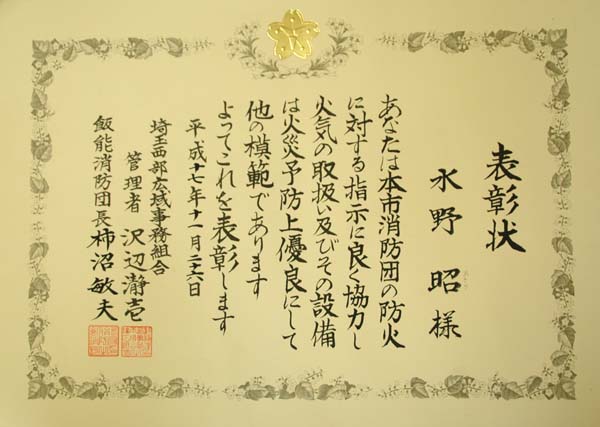 表彰状
水野 昭 様
あなたは本市消防団の防火
に対する指示に良く協力し
火気の取扱い及びその設備
は火災予防上優良にして
他の模範であります
よってこれを表彰します
平成十七年十一月二十六日
埼玉西部広域事務組合
管理者 沢辺瀞壱
飯能消防団長 柿沼敏夫